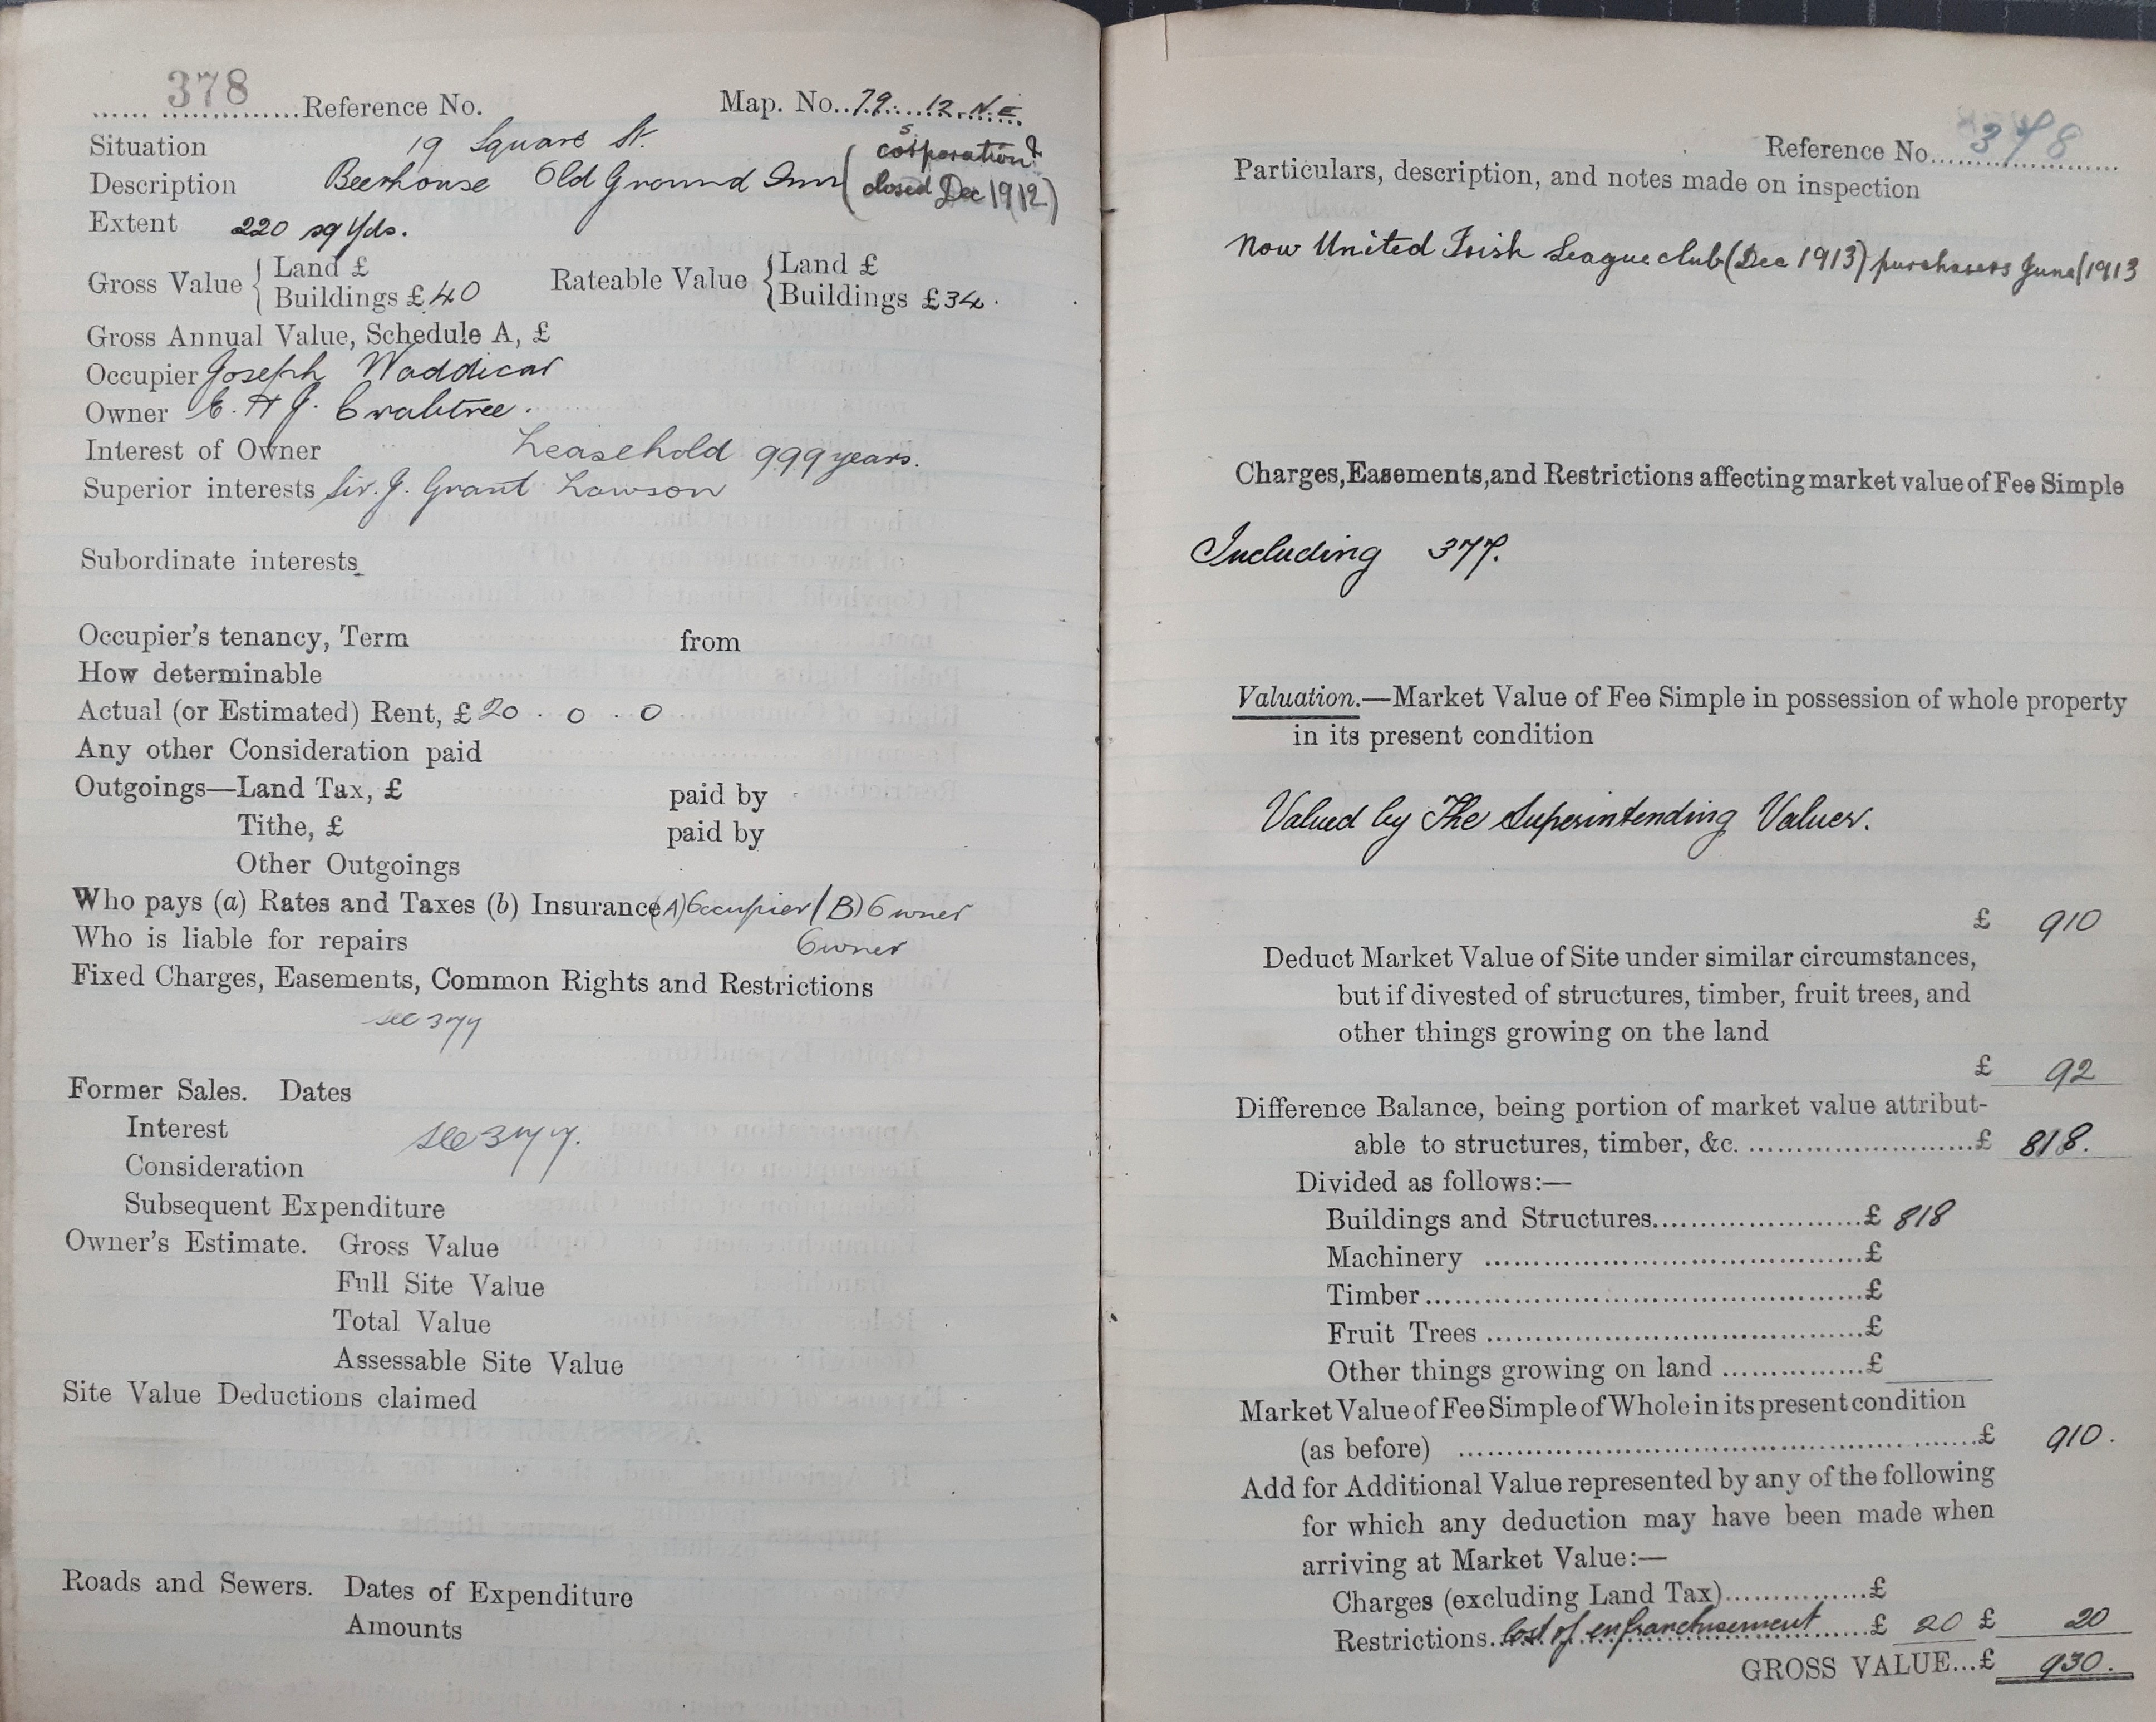 378 Reference No. Map. No. 79. 12. N.E
Situation 19 Square St.
Description Beerhouse Old Ground Inn (corporation closed Dec 1912)
Extent 220 sq Yds.
Gross Value { Land £ Rateable Value { Land £
Buildings £ 40 Buildings £ 34.
Gross Annual Value, Schedule A, £
Occupier Joseph Waddicar
Owner E. H J. Crabtree.
Interest of Owner Leasehold 999 years.
Superior interests Sir. J. Grant Lawson
Subordinate interests
Occupier's tenancy, Term from
How determinable
Actual (or Estimated) Rent, £ 20 . 0 . 0
Any other Consideration paid
Outgoings—Land Tax, £ paid by
Tithe, £ paid by
Other Outgoings
Who pays (a) Rates and Taxes (b) Insurance (A) Occupier (B) Owner
Who is liable for repairs Owner
Fixed Charges, Easements, Common Rights and Restrictions
see 377
Former Sales. Dates
Interest see 377.
Consideration
Subsequent Expenditure
Owner's Estimate. Gross Value
Full Site Value
Total Value
Assessable Site Value
Site Value Deductions claimed
Roads and Sewers. Dates of Expenditure
Amounts
Reference No. 378
Particulars, description, and notes made on inspection
Now United Irish League club (Dec 1913) purchasers June/1913
Charges, Easements, and Restrictions affecting market value of Fee Simple
Including 377.
Valuation.—Market Value of Fee Simple in possession of whole property
in its present condition
Valued by The Superintending Valuer.
£ 910
Deduct Market Value of Site under similar circumstances,
but if divested of structures, timber, fruit trees, and
other things growing on the land
£ 92
Difference Balance, being portion of market value attribut-
able to structures, timber, &c. £ 818.
Divided as follows:—
Buildings and Structures £ 818
Machinery £
Timber £
Fruit Trees £
Other things growing on land £
Market Value of Fee Simple of Whole in its present condition
(as before) £ 910.
Add for Additional Value represented by any of the following
for which any deduction may have been made when
arriving at Market Value:—
Charges (excluding Land Tax) £
Restrictions. Cost of enfranchisement £ 20 £ 20
GROSS VALUE...£ 930.